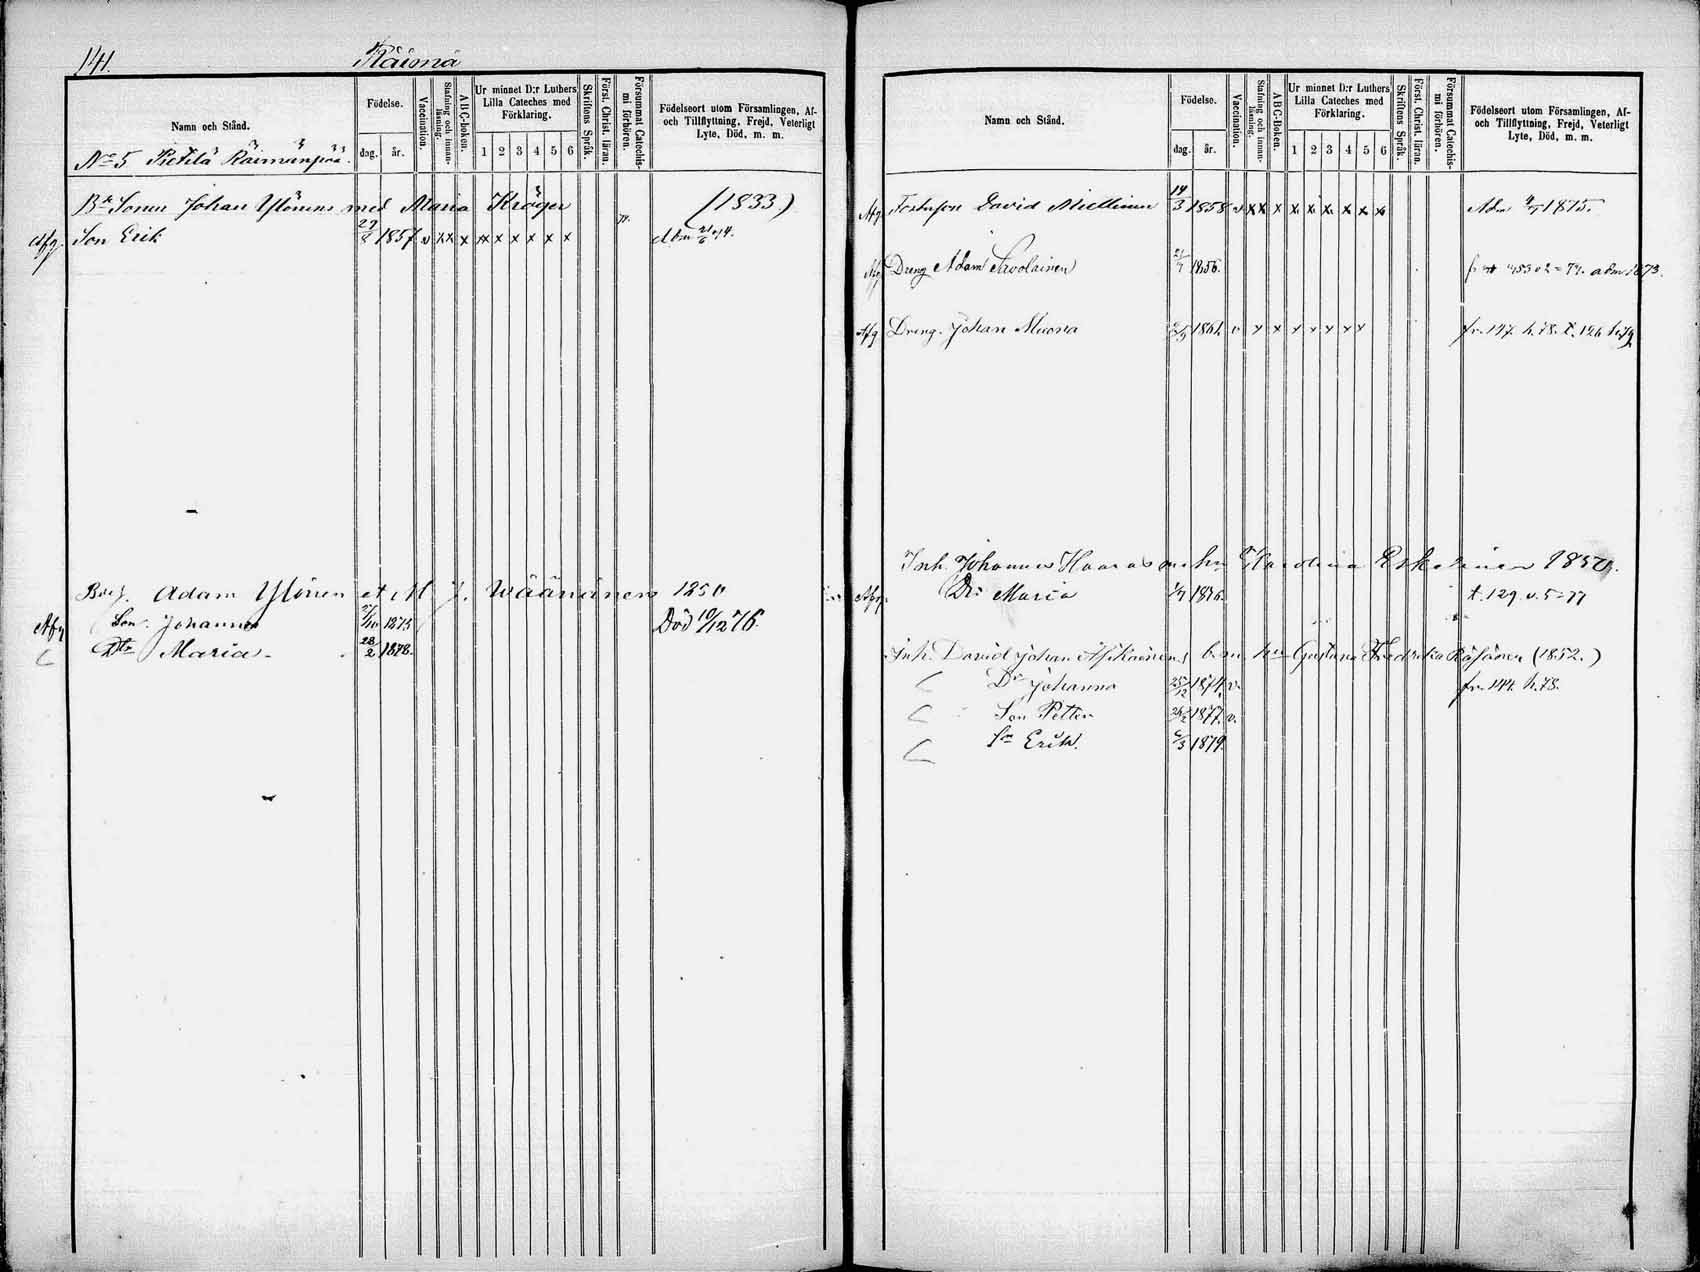 141.
Räimä
Namn och Stånd.
Födelse.
dag.
år.
Vaccination.
Stafning och innanläsning.
A B C-boken.
Ur minnet D:r Luthers Lilla Cateches med Förklaring.
1 2 3 4 5 6
Skriftens Språk.
Först. Christ. läran.
Försummat Catechismi förhören.
Födelseort utom Församlingen, Af- och Tillflyttning, Frejd, Veterligt Lyte, Död, m. m.
No 5 Pietilä Räimänpää.
Bd Sonen Johan Ylönen med Maria Kröger (1833)
Afg. Son Erik 29/8 1857 v x x x x x x x x x Adm 21/6 74.
Adam Ylönen et M J. Wäänänen 1850
Afg Son Johannes 1875 Död 10/12 76.
Dtr Maria 28/2 1878.
Namn och Stånd.
Födelse.
dag.
år.
Vaccination.
Stafning och innanläsning.
A B C-boken.
Ur minnet D:r Luthers Lilla Cateches med Förklaring.
1 2 3 4 5 6
Skriftens Språk.
Först. Christ. läran.
Försummat Catechismi förhören.
Födelseort utom Församlingen, Af- och Tillflyttning, Frejd, Veterligt Lyte, Död, m. m.
Afg Fosterson David Miettinen 14/3 1858 v x x x x x x x x x Adm 1875.
Afg Dreng Adam Savolainen 1856. adm 1873.
Afg Dreng Johan Muona 1861 v x x x x x x x fr. 147. h. 78. t. 126 h. 79
Inh. Johannes Haaras m hu Karolina Eskelinen
Afg. Dr Maria 1876 t. 129. v. 5=77
Inh. David Johan Asikainen b. m. hu Gustava Fredrika Räsänen (1852.)
Dr Johanna 25/12 1874. v. fr. 144. h. 78.
Son Petter 1877. v.
Sn Erik. 1879.